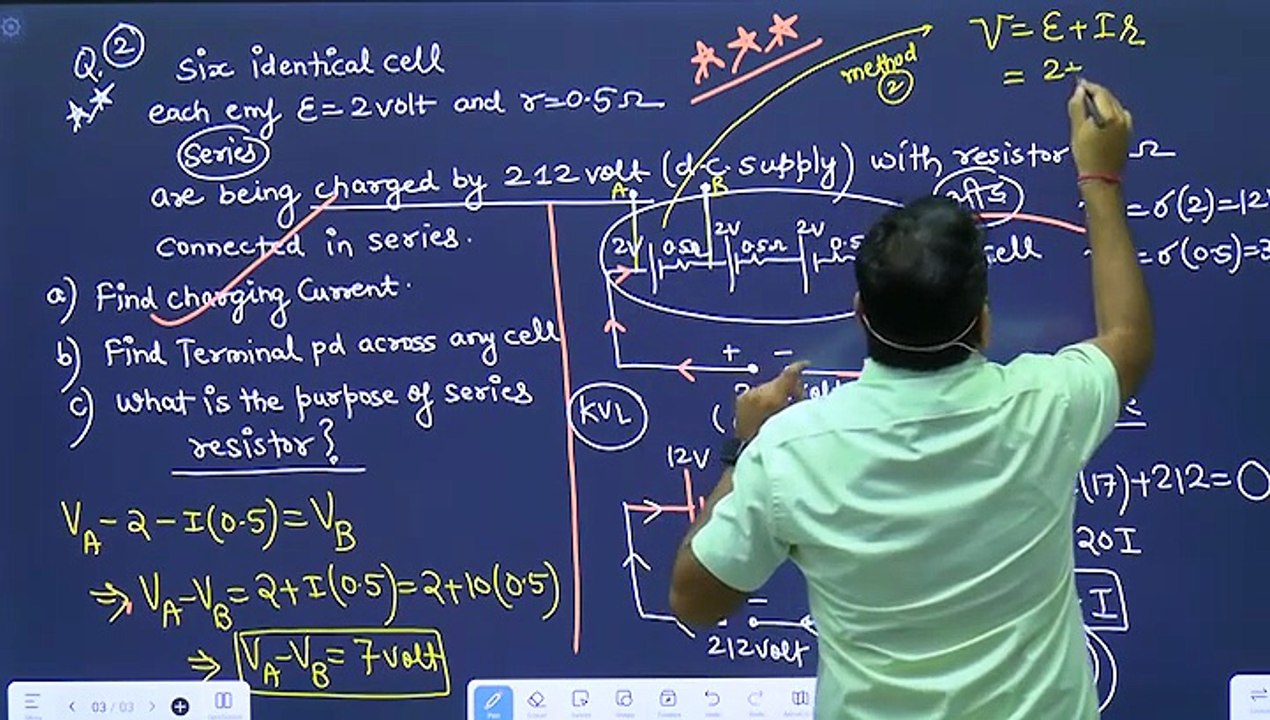 Q. 2 Six identical cell
each emf ε=2volt and r=0.5Ω
series
are being charged by 212 volt (d.c. supply) with resistor Ω
connected in series.
a) Find charging Current.
b) Find Terminal pd across any cell
c) what is the purpose of series
resistor?
V_A - 2 - I(0.5) = V_B
⇒ V_A - V_B = 2 + I(0.5) = 2 + 10(0.5)
⇒ V_A - V_B = 7 volt
method
2
V = ε + Ir
= 2+
A B
2V 0.5Ω 2V 0.5Ω 2V 0.5
cell
= 6(2) = 12V
= 6(0.5) = 3
+ −
KVL
12V
(17) + 212 = 0
20I
I
−
212volt
03 / 03